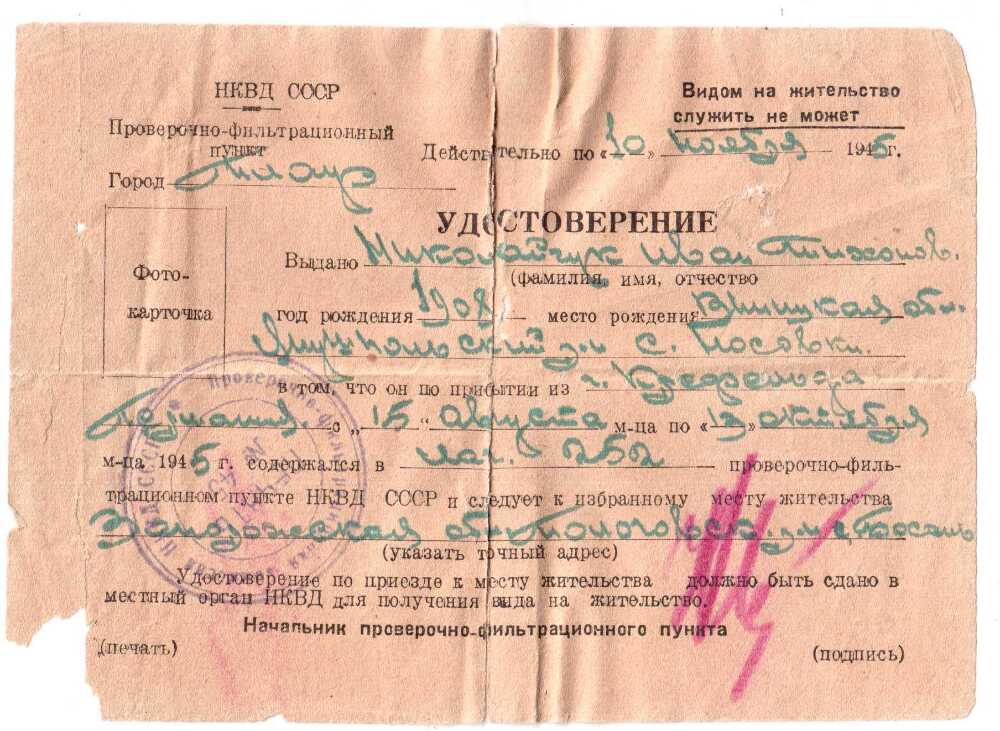 НКВД СССР
Видом на жительство
служить не может
Проверочно-фильтрационный
пункт
Действительно по «10» ноября 1945г.
Город
УДОСТОВЕРЕНИЕ
Выдано Николайчук Иван Тихонов.
(фамилия, имя, отчество
Фото-
карточка
год рождения 1908 место рождения Вницкая обл.
с. Носовки.
в том, что он по прибытии из г. Крефельда
с „15" августа м-ца по «13» октября
м-ца 1945 г. содержался в лаг. 262 проверочно-филь-
трационном пункте НКВД СССР и следует к избранному месту жительства
обл.
(указать точный адрес)
Удостоверение по приезде к месту жительства должно быть сдано в
местный орган НКВД для получения вида на жительство.
Начальник проверочно-фильтрационного пункта
(печать)
(подпись)